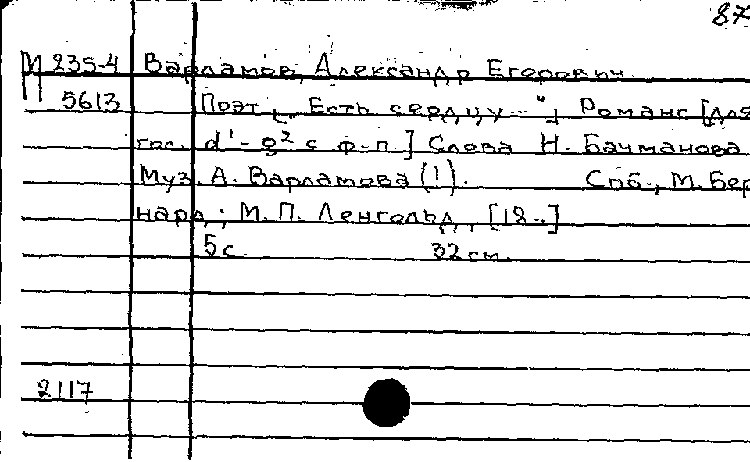 87
М 235-4 Варламов, Александр Егорович.
П 5613 Поэт [„Есть сердцу..."]. Романс [для
гол. d¹-g² с ф-п] Слова Н. Бачманова
Муз. А. Варламова (!). Спб., М. Бер
нард; М. П. Ленгольд, [18..]
5 с 32 см.
2117